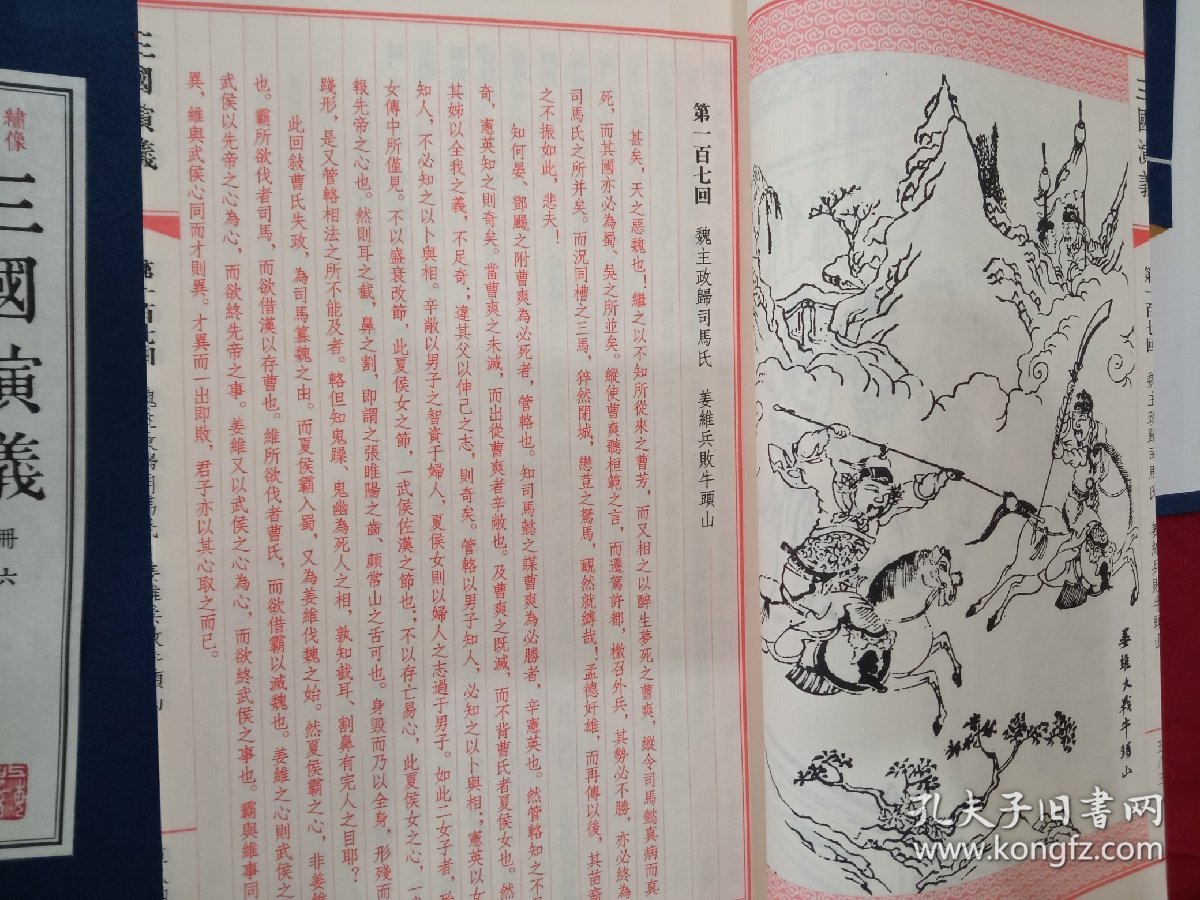 三國演義
姜維大戰牛頭山
第一百七回　魏主政歸司馬氏　姜維兵敗牛頭山
甚矣，天之惡魏也！繼之以不知所從來之曹芳，而又相之以醉生夢死之曹爽，縱令司馬懿真病而真
死，而其國亦必為蜀、吳之所並矣。縱使曹爽聽桓範之言，而遷駕許都，檄召外兵，其勢必不勝，亦必終為
司馬氏之所并矣。而況同槽之三馬，猝然閉城，戀荳之駑馬，靦然就縛哉！孟德奸雄，而再傳以後，其苗裔
之不振如此，悲夫！
知何晏、鄧颺之附曹爽為必死者，管輅也。知司馬懿之謀曹爽為必勝者，辛憲英也。然管輅知之不足
奇，憲英知之則奇矣。當曹爽之未滅，而出從曹爽者辛敞也。及曹爽之既滅，而不背曹氏者夏侯女也。然
其姊以全我之義，不足奇；違其父以伸己之志，則奇矣。管輅以男子知人，必知之以卜與相；憲英以女
知人，不必知之以卜與相。辛敞以男子之智資于婦人，夏侯女則以婦人之志過于男子。如此二女子者，
女傳中所僅見。不以盛衰改節，此夏侯女之節，一武侯佐漢之節也；不以存亡易心，此夏侯女之心，一
報先帝之心也。然則耳之截，鼻之割，即謂之張睢陽之齒、顏常山之舌可也。身毀而乃以全身，形殘而
踐形，是又管輅相法之所不能及者。輅但知鬼躁、鬼幽為死人之相，孰知截耳、割鼻有完人之目耶？
此回敍曹氏失政，為司馬篡魏之由。而夏侯霸入蜀，又為姜維伐魏之始。然夏侯霸之心，非姜維
也。霸所欲伐者司馬，而欲借漢以存曹也。維所欲伐者曹氏，而欲借霸以滅魏也。姜維之心則武侯之
武侯以先帝之心為心，而欲終先帝之事。姜維又以武侯之心為心，而欲終武侯之事也。霸與維事同
異，維與武侯心同而才則異。才異而一出即敗，君子亦以其心取之而已。
三國演義
繡像
三國演義
冊六
孔夫子旧书网
www.kongfz.com